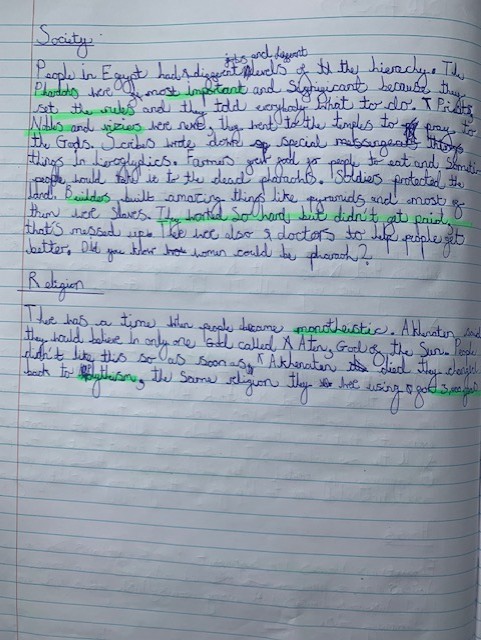 Society
jobs and different
People in Egypt had different levels of the hierachy. The
Pharaohs were the most important and Significant because they
set the rules and they told everybody what to do. Priests
Nobles and viziers were next, they went to the temples to pray to
the Gods. Scribes wrote down special things
things in hieroglyphics. Farmers grew food for people to eat and
people would take it to the dead pharaohs. Soldiers protected the
land. Builders built amazing things like pyramids and most of
them were slaves. They worked so hard, but didn't get paid,
that's messed up. There were also doctors to help people get
better. Did you know women could be pharaoh?
Religion
There was a time when people became monotheistic. Akhenaten said
they would believe in only one God called Aten, God of the Sun. People
didn't like this so as soon as Akhenaten died they changed
back to Polytheism, the same religion they were using